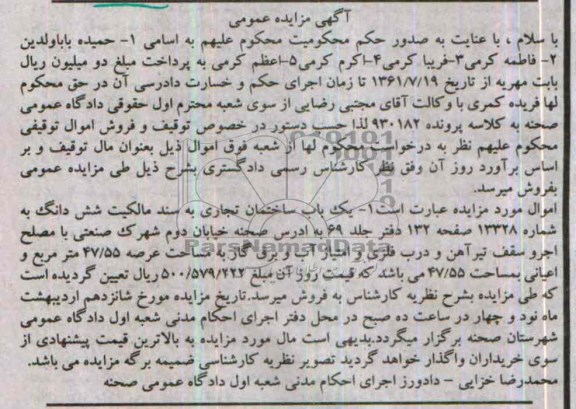 آگهی مزایده عمومی
با سلام ، با عنایت به صدور حکم محکومیت محکوم علیهم به اسامی ۱- حمیده باباولدین
۲- فاطمه کرمی۳-فریبا کرمی۴-اکرم کرمی۵-اعظم کرمی به پرداخت مبلغ دو میلیون ریال
بابت مهریه از تاریخ ۱۳۶۱/۷/۱۹ تا زمان اجرای حکم و خسارت دادرسی آن در حق محکوم
لها فریده کمری با وکالت آقای مجتبی رضایی از سوی شعبه محترم اول حقوقی دادگاه عمومی
صحنه به کلاسه پرونده ۹۳۰۱۸۲ لذا حسب دستور در خصوص توقیف و فروش اموال توقیفی
محکوم علیهم نظر به درخواست محکوم لها از شعبه فوق اموال ذیل بعنوان مال توقیف و بر
اساس برآورد روز آن وفق نظر کارشناس رسمی دادگستری بشرح ذیل طی مزایده عمومی
بفروش میرسد.
اموال مورد مزایده عبارت است۱- یک باب ساختمان تجاری به سند مالکیت شش دانگ به
شماره ۱۳۳۲۸ صفحه ۱۳۲ دفتر جلد ۶۹ به ادرس صحنه خیابان دوم شهرک صنعتی با مصلح
اجرو سقف تیرآهن و درب فلزی و امتیاز آب و برق گاز به مساحت عرصه ۴۷/۵۵ متر مربع و
اعیانی بمساحت ۴۷/۵۵ می باشد که قیمت روز آن مبلغ ۵۰۰/۵۷۹/۲۲۲ ریال تعیین گردیده است
که طی مزایده بشرح نظریه کارشناس به فروش میرسد.تاریخ مزایده مورخ شانزدهم اردیبهشت
ماه نود و چهار در ساعت ده صبح در محل دفتر اجرای احکام مدنی شعبه اول دادگاه عمومی
شهرستان صحنه برگزار میگردد.بدیهی است مال مورد مزایده به بالاترین قیمت پیشنهادی از
سوی خریداران واگذار خواهد گردید تصویر نظریه کارشناسی ضمیمه برگه مزایده می باشد.
محمدرضا خزایی - دادورز اجرای احکام مدنی شعبه اول دادگاه عمومی صحنه